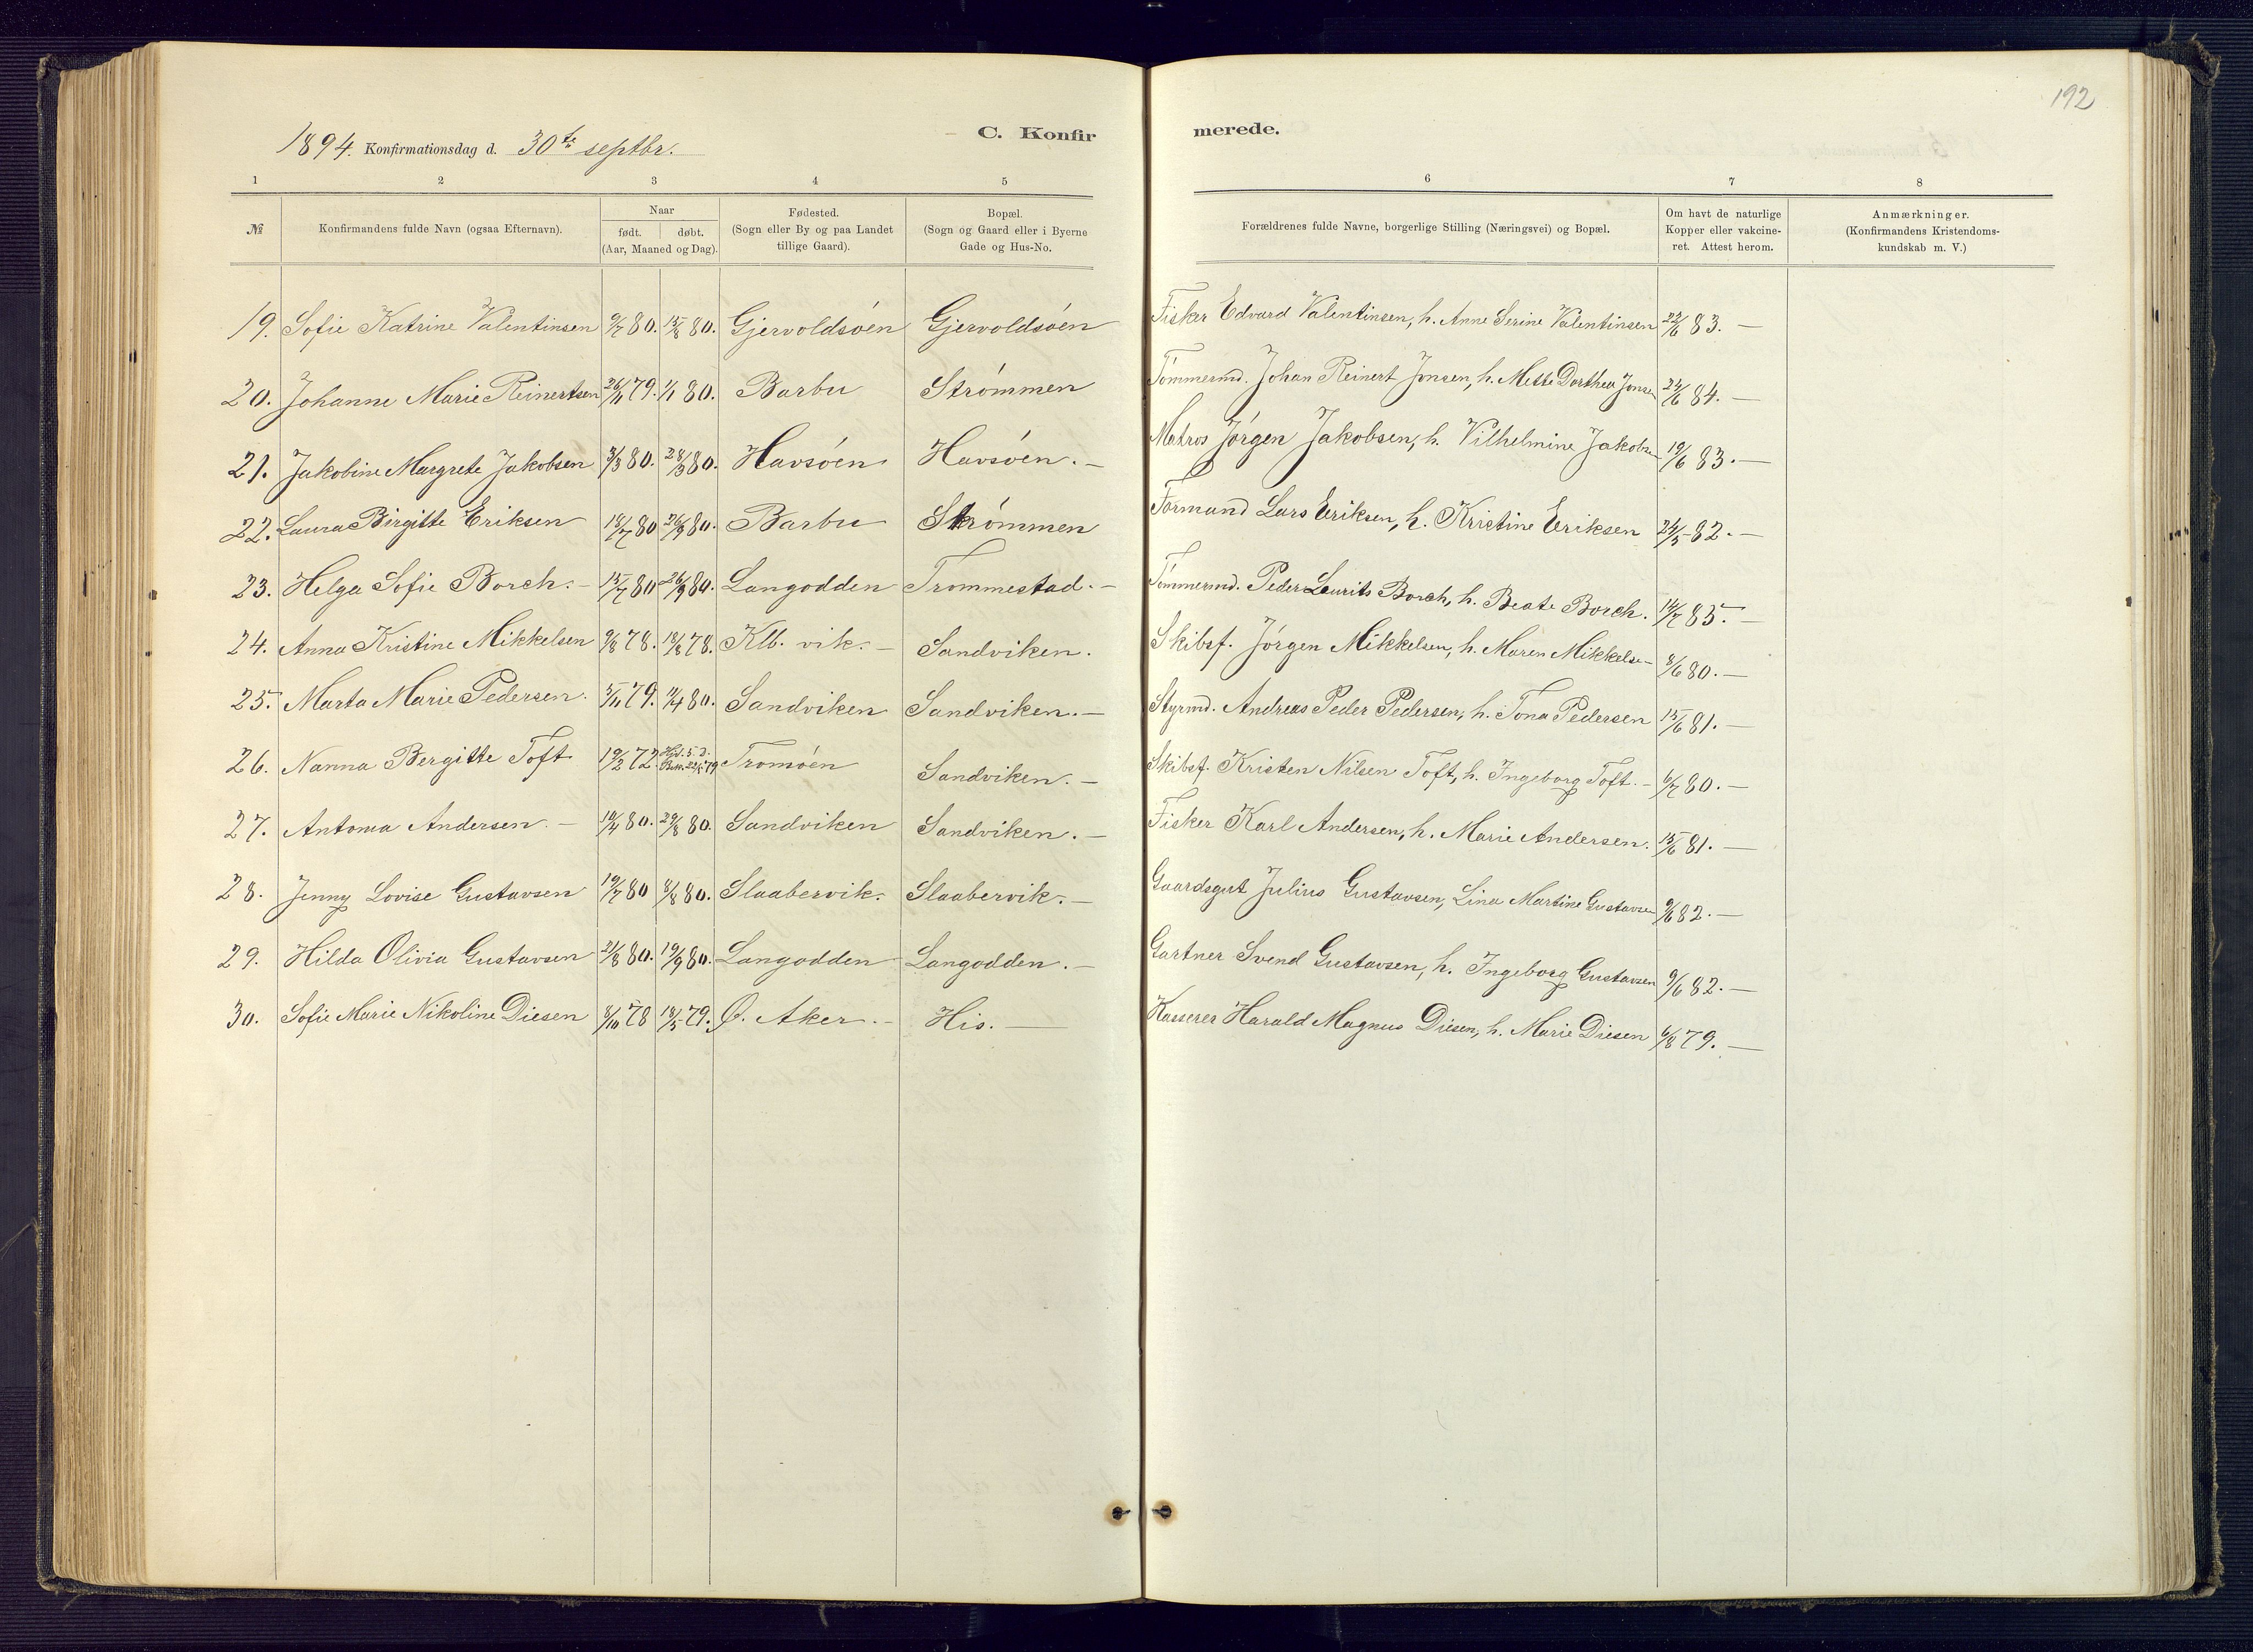 192
1894. Konfirmationsdag d. 30te septbr. C. Konfir merede.
1 2 3 4 5 6 7 8
№ Konfirmandens fulde Navn (ogsaa Efternavn). Naar født. døbt. (Aar, Maaned og Dag). Fødested. (Sogn eller By og paa Landet tillige Gaard). Bopæl. (Sogn og Gaard eller i Byerne Gade og Hus-No. Forældrenes fulde Navne, borgerlige Stilling (Næringsvei) og Bopæl. Om havt de naturlige Kopper eller vakcineret. Attest herom. Anmærkninger. (Konfirmandens Kristendomskundskab m. V.)
19. Sofie Katrine Valentinsen 9/7 80. 15/8 80. Gjervoldsöen Gjervoldsöen Fisker Edvard Valentinsen, h. Anne Serine Valentinsen 22/6 83. —
20. Johanne Marie Reinertsen 26/11 79. 1/1 80. Barbu Strömmen Tömmermd. Johan Reinert Jonsen, h. Mette Dorthea Jonsen 24/6 84. —
21. Jakobine Margrete Jakobsen 3/3 80. 28/3 80. Havsöen Havsöen. — Matros Jörgen Jakobsen, h. Vilhelmine Jakobsen 19/6 83. —
22. Laura Birgitte Eriksen 18/7 80 26/9 80. Barbu Strömmen Formand Lars Eriksen, h. Kristine Eriksen 24/5 82. —
23. Helga Sofie Borch. — 15/7 80 26/9 80. Langodden Trommestad. — Tömmermd. Peder Laurits Borch, h. Beate Borch. 14/7 85. —
24. Anna Kristine Mikkelsen 9/8 78. 18/8 78. Klb. vik. — Sandviken. Skibsf. Jörgen Mikkelsen, h. Maren Mikkelse— 8/6 80. —
25. Marta Marie Pedersen. 5/11 79. 11/4 80. Sandviken Sandviken. — Styrmd. Andreas Peder Pedersen, h. Tona Pedersen 15/6 81. —
26. Nanna Bergitte Toft 19/2 72. Hjd. 5. D. Tromöen Sandviken. — Skibsf. Kristen Nilsen Toft, h. Ingeborg Toft. — 6/7 80. —
27. Antona Andersen. — 10/4 80. 29/8 80. Sandviken Sandviken. — Fisker Karl Andersen, h. Marie Andersen. 15/6 81. —
28. Jenny Lovise Gustavsen 19/7 80 8/8 80. Slaabervik. Slaabervik. — Gaardsgut Julius Gustavsen, Lina Martine Gustavsen 9/6 82. —
29. Hilda Olivia Gustavsen 21/8 80. 19/9 80. Langodden Langodden. — Gartner Svend Gustavsen, h. Ingeborg Gustavsen 9/6 82. —
30. Sofie Marie Nikoline Diesen 8/10 78 18/5 79. Ø. Aker. — His. — Kasserer Harald Magnus Diesen, h. Marie Diesen 6/8 79. —